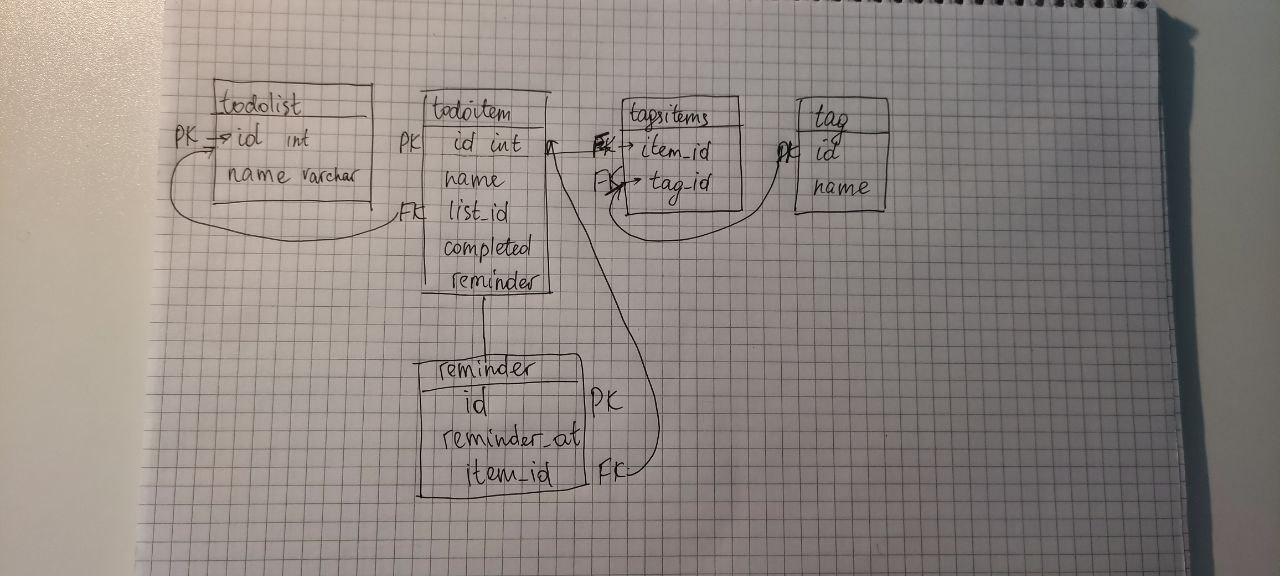 todolist
PK id int
name varchar
todoitem
PK id int
name
FK list_id
completed
reminder
tagsitems
FK item_id
FK tag_id
tag
PK id
name
reminder
id PK
reminder_at
item_id FK